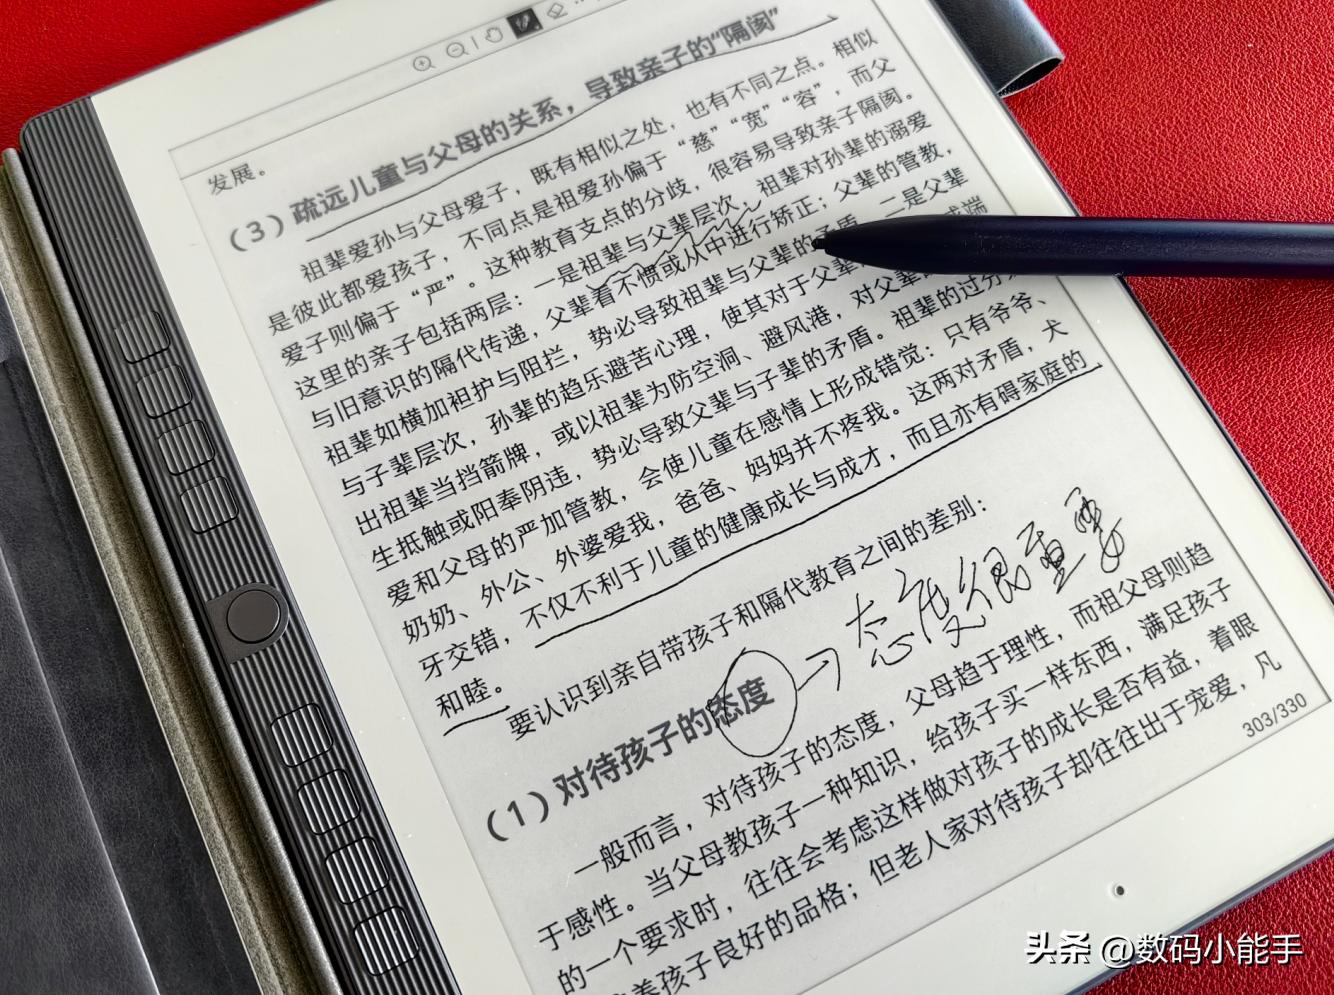 发展。
（3）疏远儿童与父母的关系，导致亲子的“隔阂”
祖辈爱孙与父母爱子，既有相似之处，也有不同之点。相似
是彼此都爱孩子，不同点是祖爱孙偏于“慈”“宽”“容”，而父
爱子则偏于“严”。这种教育支点的分歧，很容易导致亲子隔阂。
这里的亲子包括两层：一是祖辈与父辈层次，祖辈对孙辈的溺爱
与旧意识的隔代传递，父辈看不惯或从中进行矫正；父辈的管教，
祖辈如横加袒护与阻拦，势必导致祖辈与父辈的矛盾。二是父辈
与子辈层次，孙辈的趋乐避苦心理，使其对于父辈 端
出祖辈当挡箭牌，或以祖辈为防空洞、避风港，对父辈
生抵触或阳奉阴违，势必导致父辈与子辈的矛盾。祖辈的过分
爱和父母的严加管教，会使儿童在感情上形成错觉：只有爷爷、
奶奶、外公、外婆爱我，爸爸、妈妈并不疼我。这两对矛盾，犬
牙交错，不仅不利于儿童的健康成长与成才，而且亦有碍家庭的
和睦。
要认识到亲自带孩子和隔代教育之间的差别：
（1）对待孩子的态度
态度很重要
一般而言，对待孩子的态度，父母趋于理性，而祖父母则趋
于感性。当父母教孩子一种知识，给孩子买一样东西，满足孩子
的一个要求时，往往会考虑这样做对孩子的成长是否有益，着眼
养孩子良好的品格；但老人家对待孩子却往往出于宠爱，凡
303/330
头条 @数码小能手